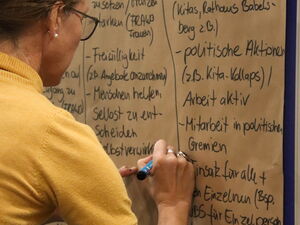 zusch
nutzen
stärken (FRAKO
Frauen)
- Freiwilligkeit
(z.B. Angebote anzunehmen)
- Menschen helfen,
Selbst zu ent-
scheiden
(Kitas, Rathaus Babels-
berg z.B.)
- politische Aktionen
(z.B. Kita-Kollaps) /
Arbeit aktiv
- Mitarbeit in politischen
Gremien
insatz für alle +
en Einzelnen (Bsp.
für Einzelperson